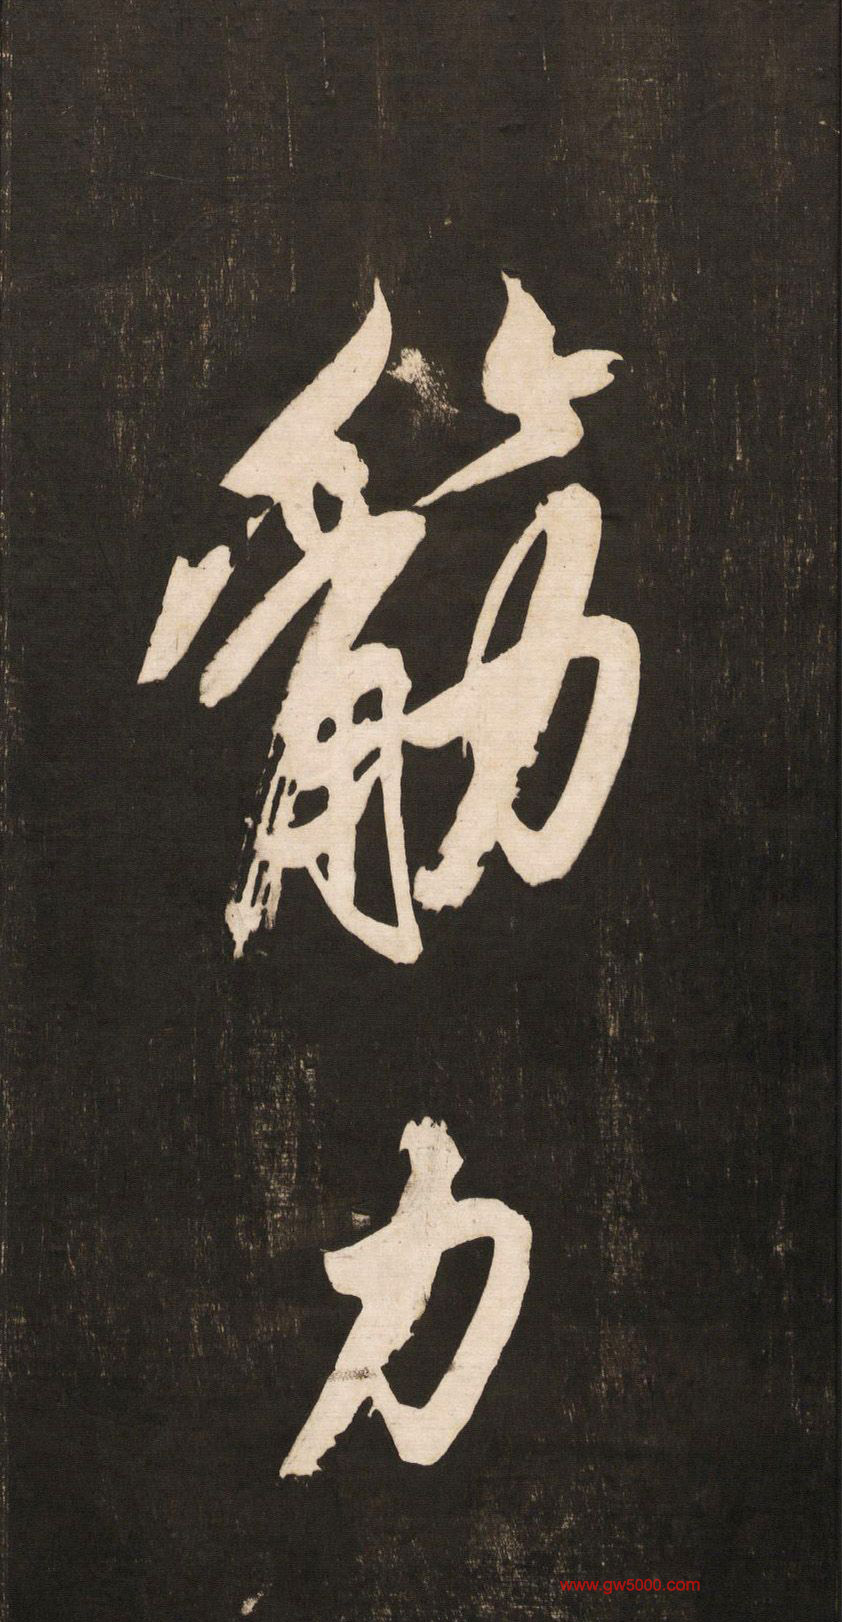 筋
力
www.gw5000.com